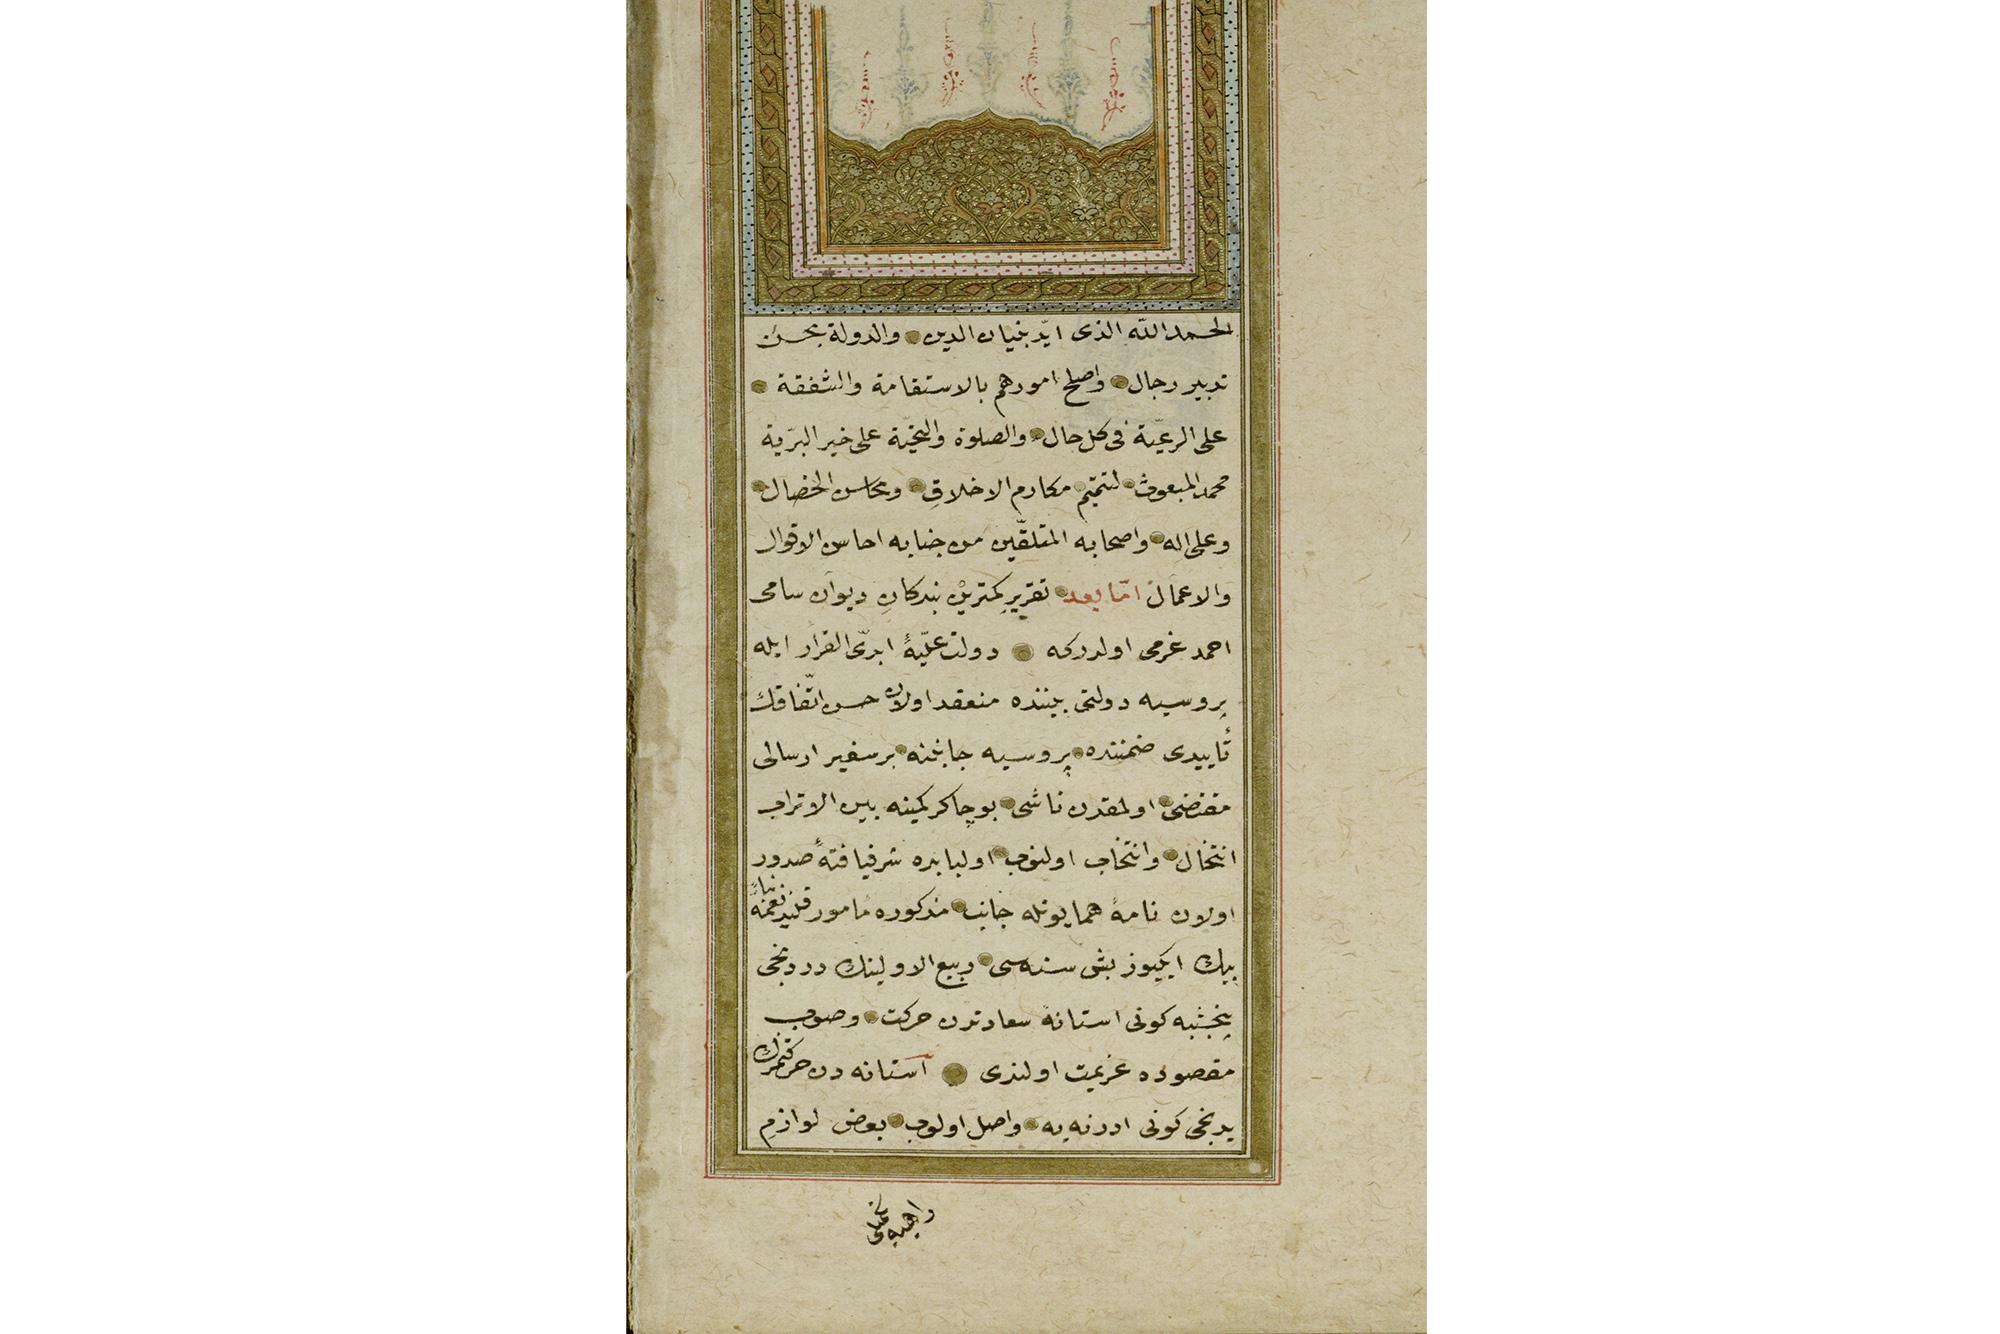 الحمد الله الذى ايّد بنيان الدين والدولة بحسن
تدبير رجال واصلح امورهم بالاستقامة والشفقة
على الرعيّة فى كل حال والصلوة والتحيّة على خير البرّية
محمد المبعوث لتتميم مكارم الاخلاق ومحاسن الخصال
وعلى اله واصحابه المتلقّين من جنابه احاسن الاقوال
والاعمال امّا بعد تقرير كمترين بندكان ديوان سامى
احمد عزمى اولدركه دولت عليّۀ ابدىّ القرار ايله
پروسيه دولتى بيننده منعقد اولان حسن اتّفاقك
تأييدى ضمننده پروسيه جانبنه بر سفير ارسالى
مقتضى اولمقدن ناشى بو چاكر كمينه بين الاتراب
انتخال وانتخاب اولنوب اولبابده شرفيافتۀ صدور
اولان نامۀ همايونله جانب مذكوره مامور قلنديغمه بناءً
بيك ايكيوز بش سنه سى ربيع الاولينك دردنجى
پنجشبه كونى استانۀ سعادتدن حركت وصوب
مقصوده عزيمت اولندى آستانه دن حركتمزك
يدنجى كونى ادرنه يه واصل اولوب بعض لوازم